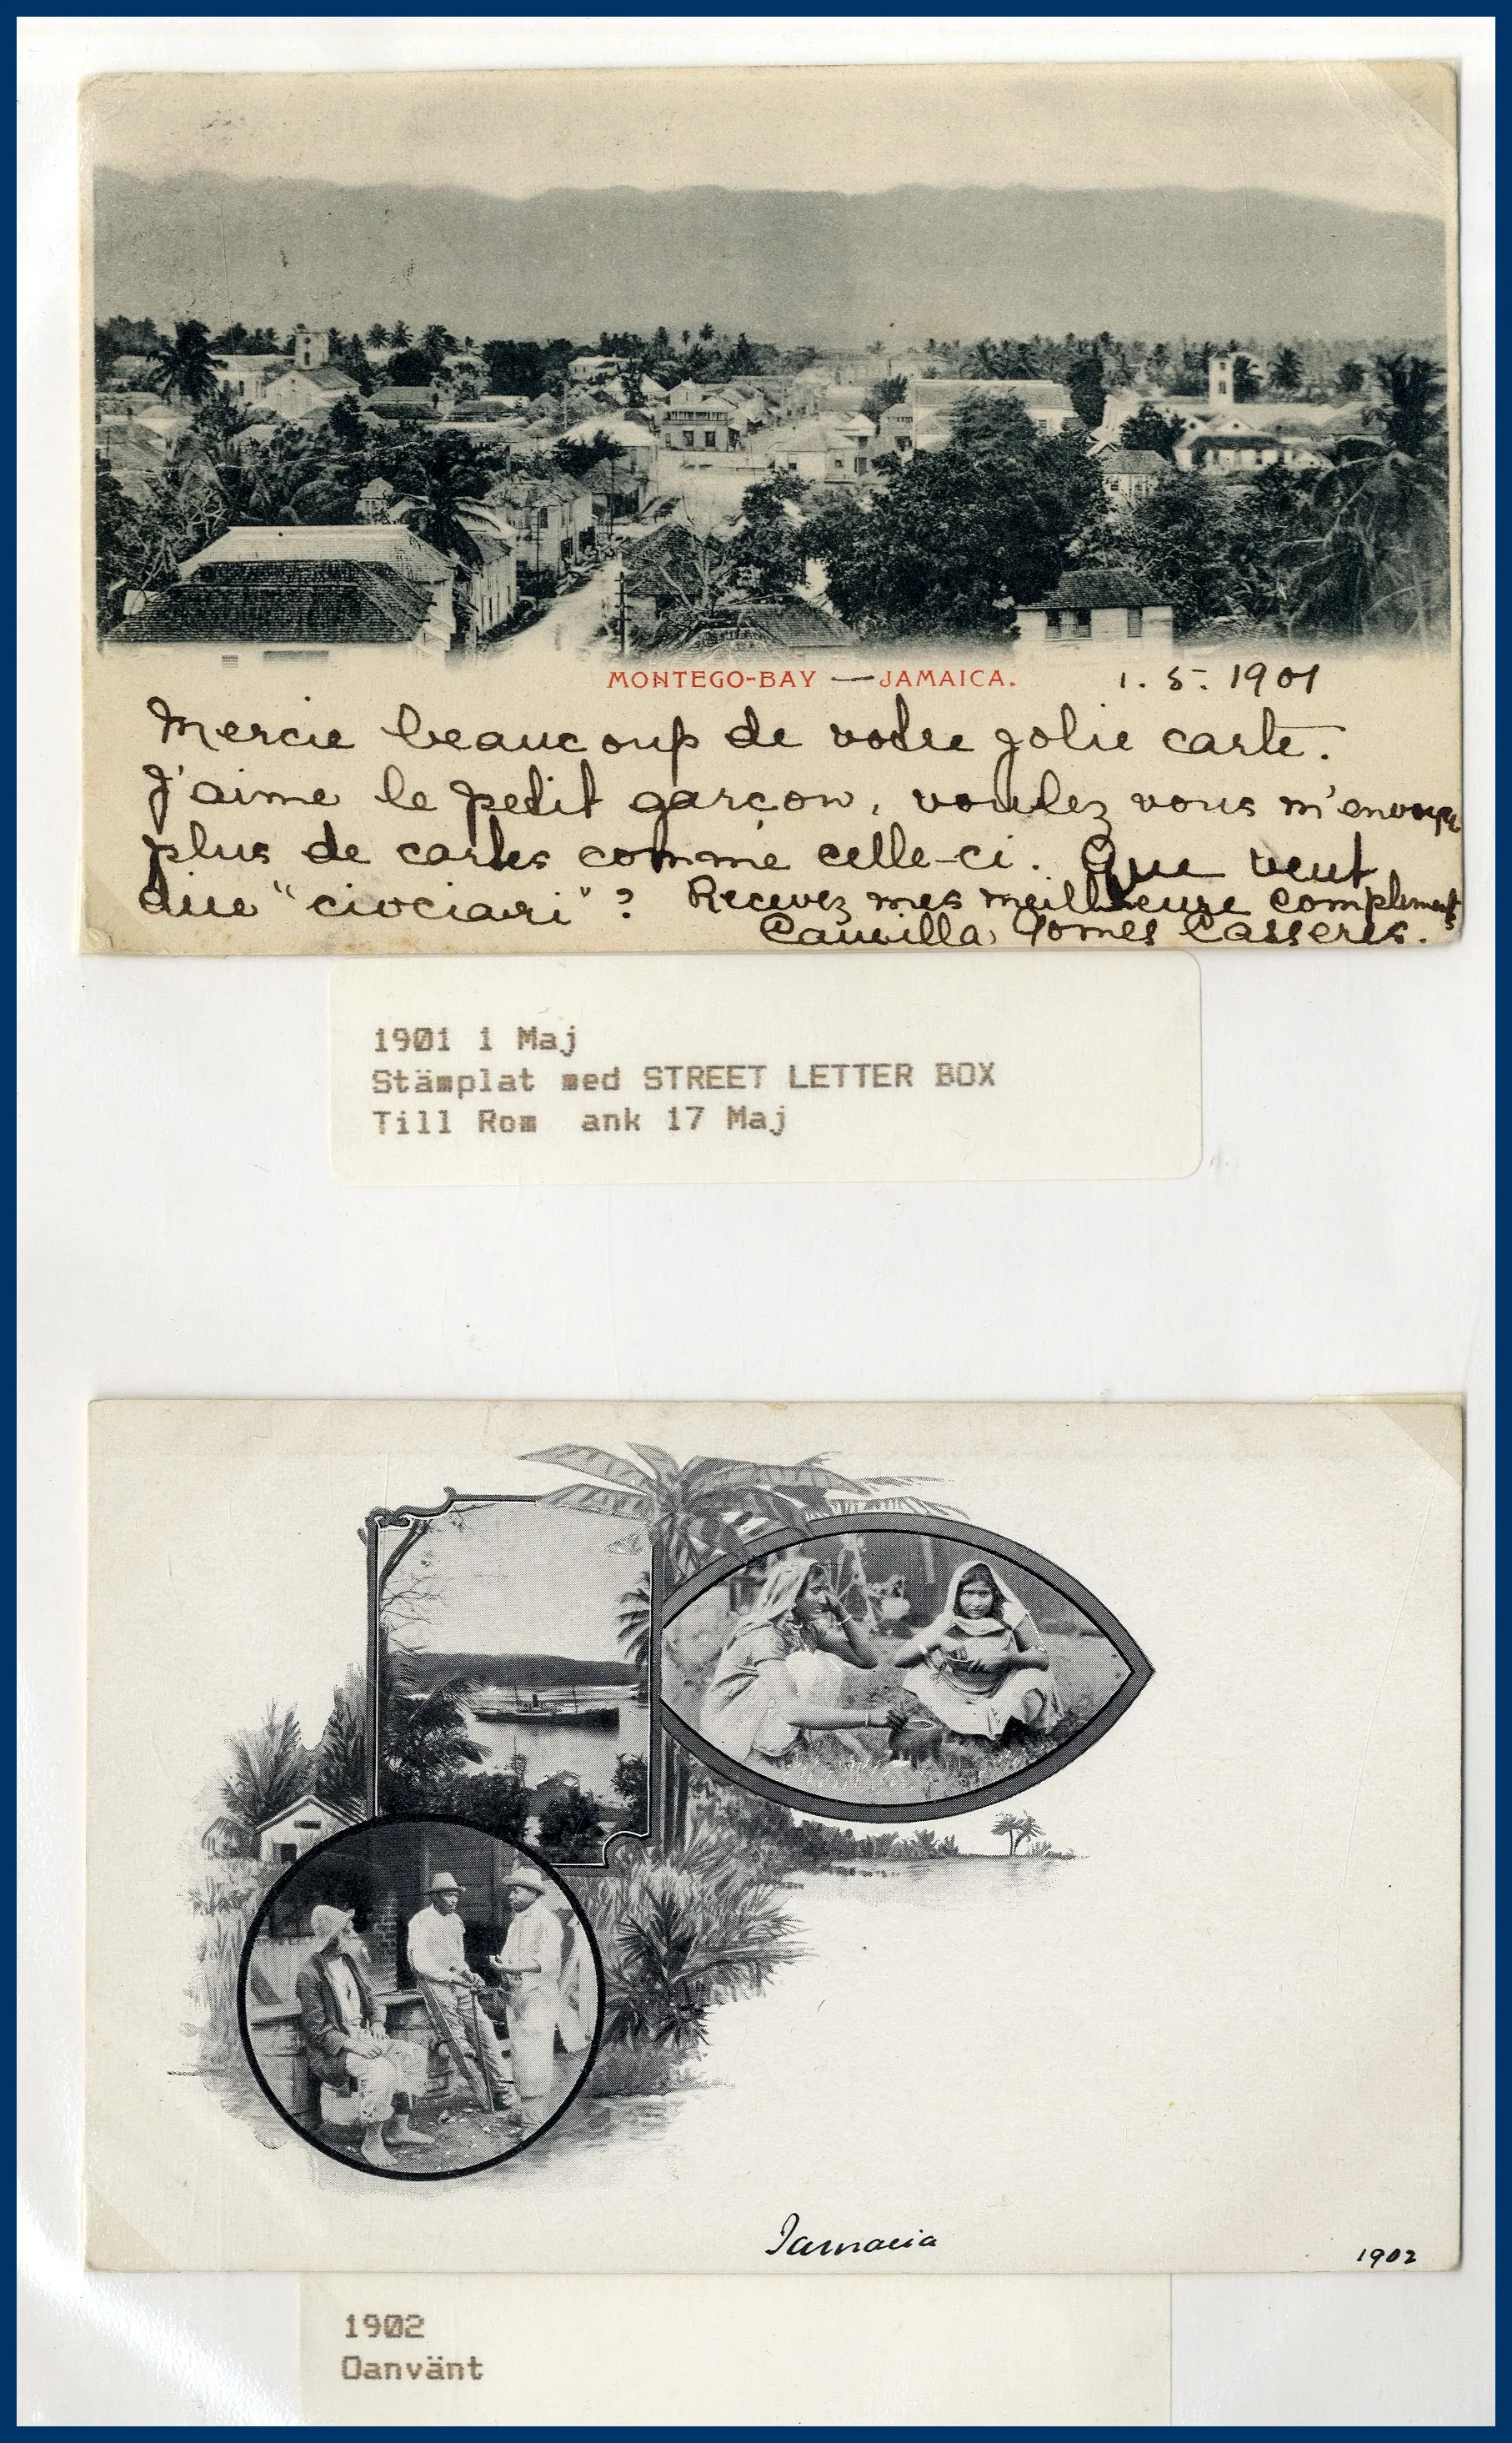 MONTEGO-BAY — JAMAICA.
1. 5. 1901
Mercie beaucoup de votre jolie carte.
J'aime le petit garçon, voulez vous m'envoyer
plus de cartes comme celle-ci. Que veut
dire "ciociari"? Recevez mes meilleure compliments
Camilla Gomes Casseres.
1901 1 Maj
Stämplat med STREET LETTER BOX
Till Rom ank 17 Maj
Jamacia
1902
1902
Oanvänt